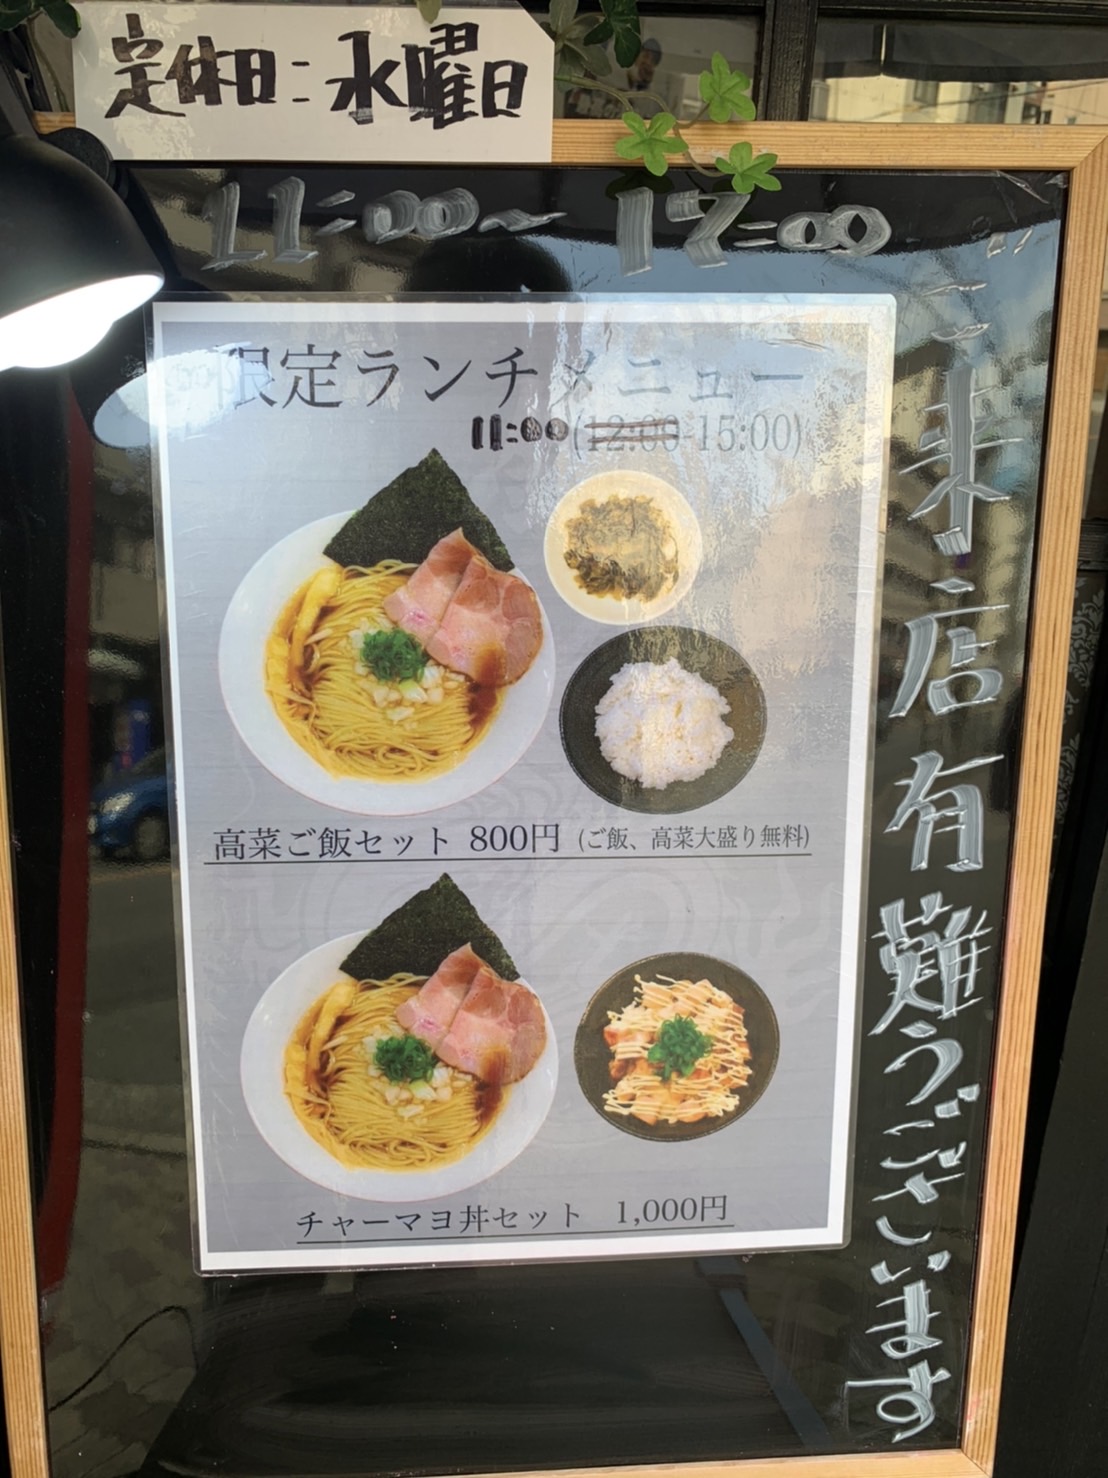 定休日:水曜日
11:00〜17:00
限定ランチメニュー
11:00(12:00-15:00)
高菜ご飯セット 800円 (ご飯、高菜大盛り無料)
チャーマヨ丼セット 1,000円
ご来店有難うございます